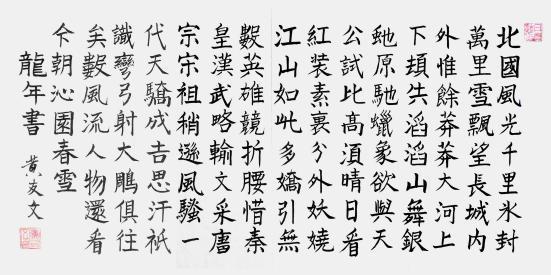 北國風光千里氷封
萬里雪飄望長城内
外惟餘莽莽大河上
下頓失滔滔山舞銀
虵原馳蠟象欲與天
公試比高須晴日看
紅装素裹分外妖嬈
江山如此多嬌引無
數英雄競折腰惜秦
皇漢武略輸文采唐
宗宋祖稍遜風騷一
代天驕成吉思汗祇
識彎弓射大鵰俱往
矣數風流人物還看
今朝沁園春雪
龍年書 黄友文